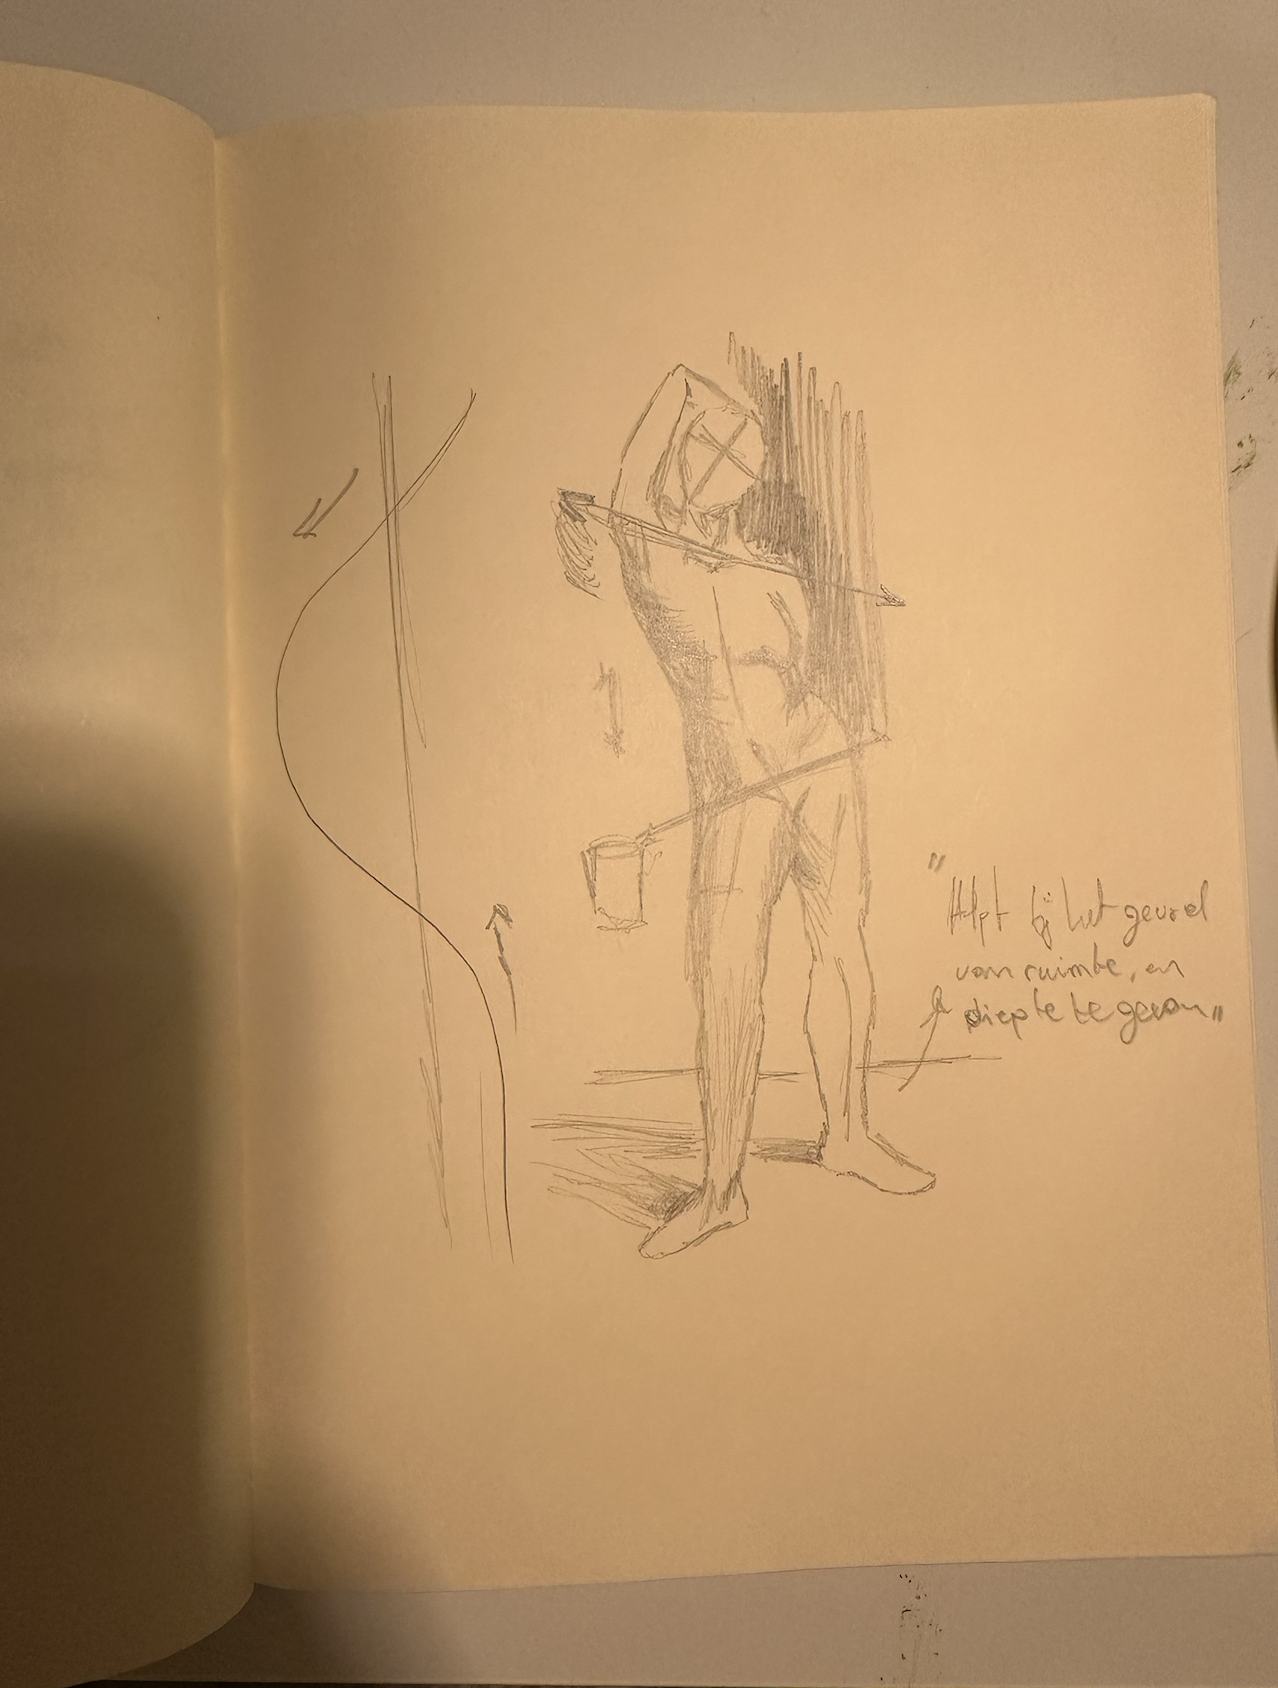 "Helpt bij het gevoel
van ruimte, en
diepte te geven"